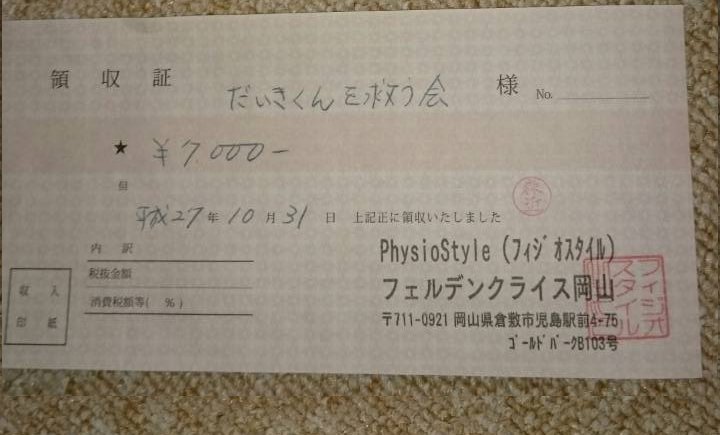 領収証
だいきくんを救う会 様 No.
★ ¥7.000-
但
平成27年10月31日 上記正に領収いたしました
内訳
税抜金額
消費税額等( %)
収入
印紙
PhysioStyle (フィジオスタイル)
フェルデンクライス岡山
〒711-0921 岡山県倉敷市児島駅前4-75
ゴールドパークB103号
フィジオ
スタイル